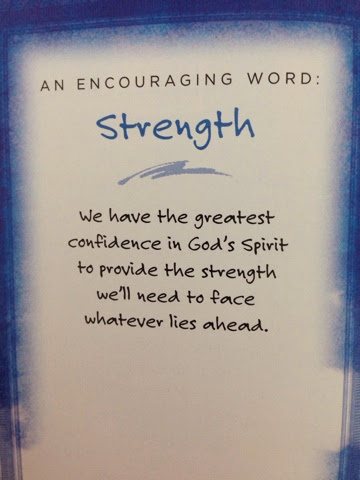 AN ENCOURAGING WORD:
Strength
We have the greatest
confidence in God's Spirit
to provide the strength
we'll need to face
whatever lies ahead.